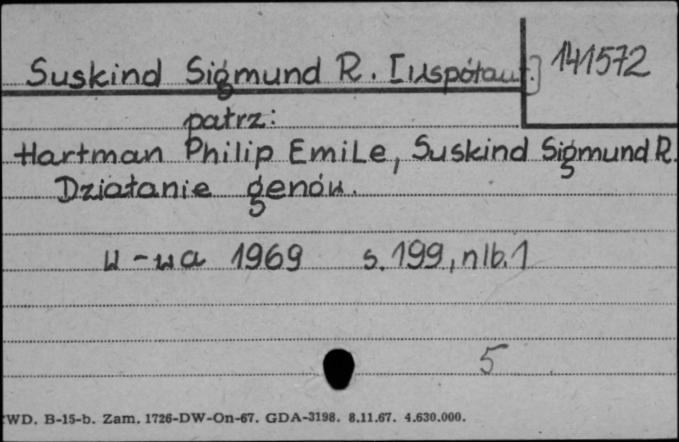 Suskind Sigmund R. [współaut.] 141572
patrz:
Hartman Philip Emile, Suskind Sigmund R.
Działanie genów.
W-wa 1969 s. 199, nlb. 1
5
WD. B-15-b. Zam. 1726-DW-On-67. GDA-3198. 8.11.67. 4.630.000.